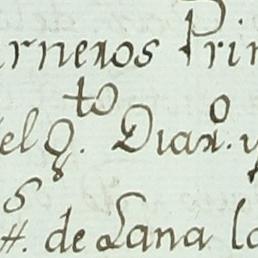 arneros Prin
el Q.to Diar.o y
#.s de Lana la